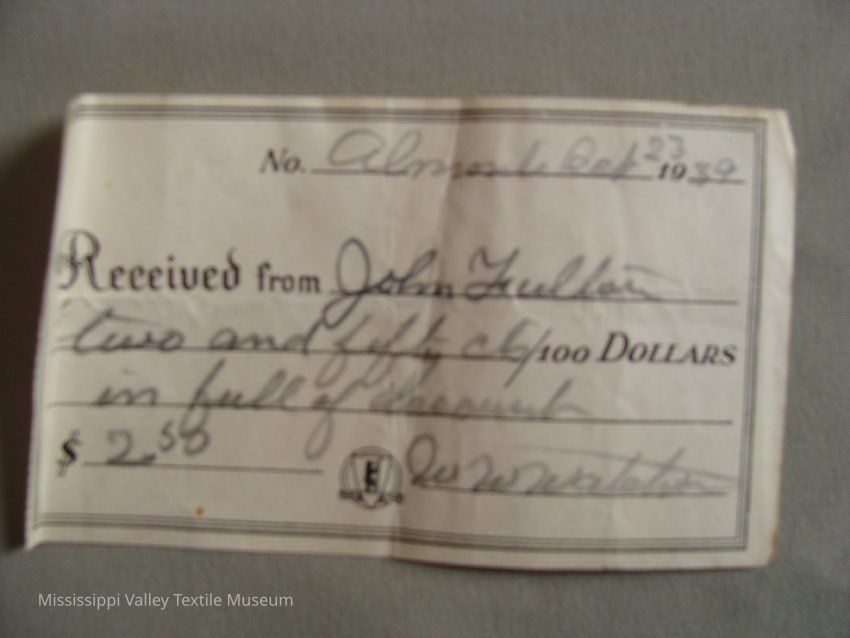 No. Almonte Oct 23 1939
Received from John Fulton
two and fifty cts/100 DOLLARS
in full of account
$ 2.50 W W Watchorn
Mississippi Valley Textile Museum